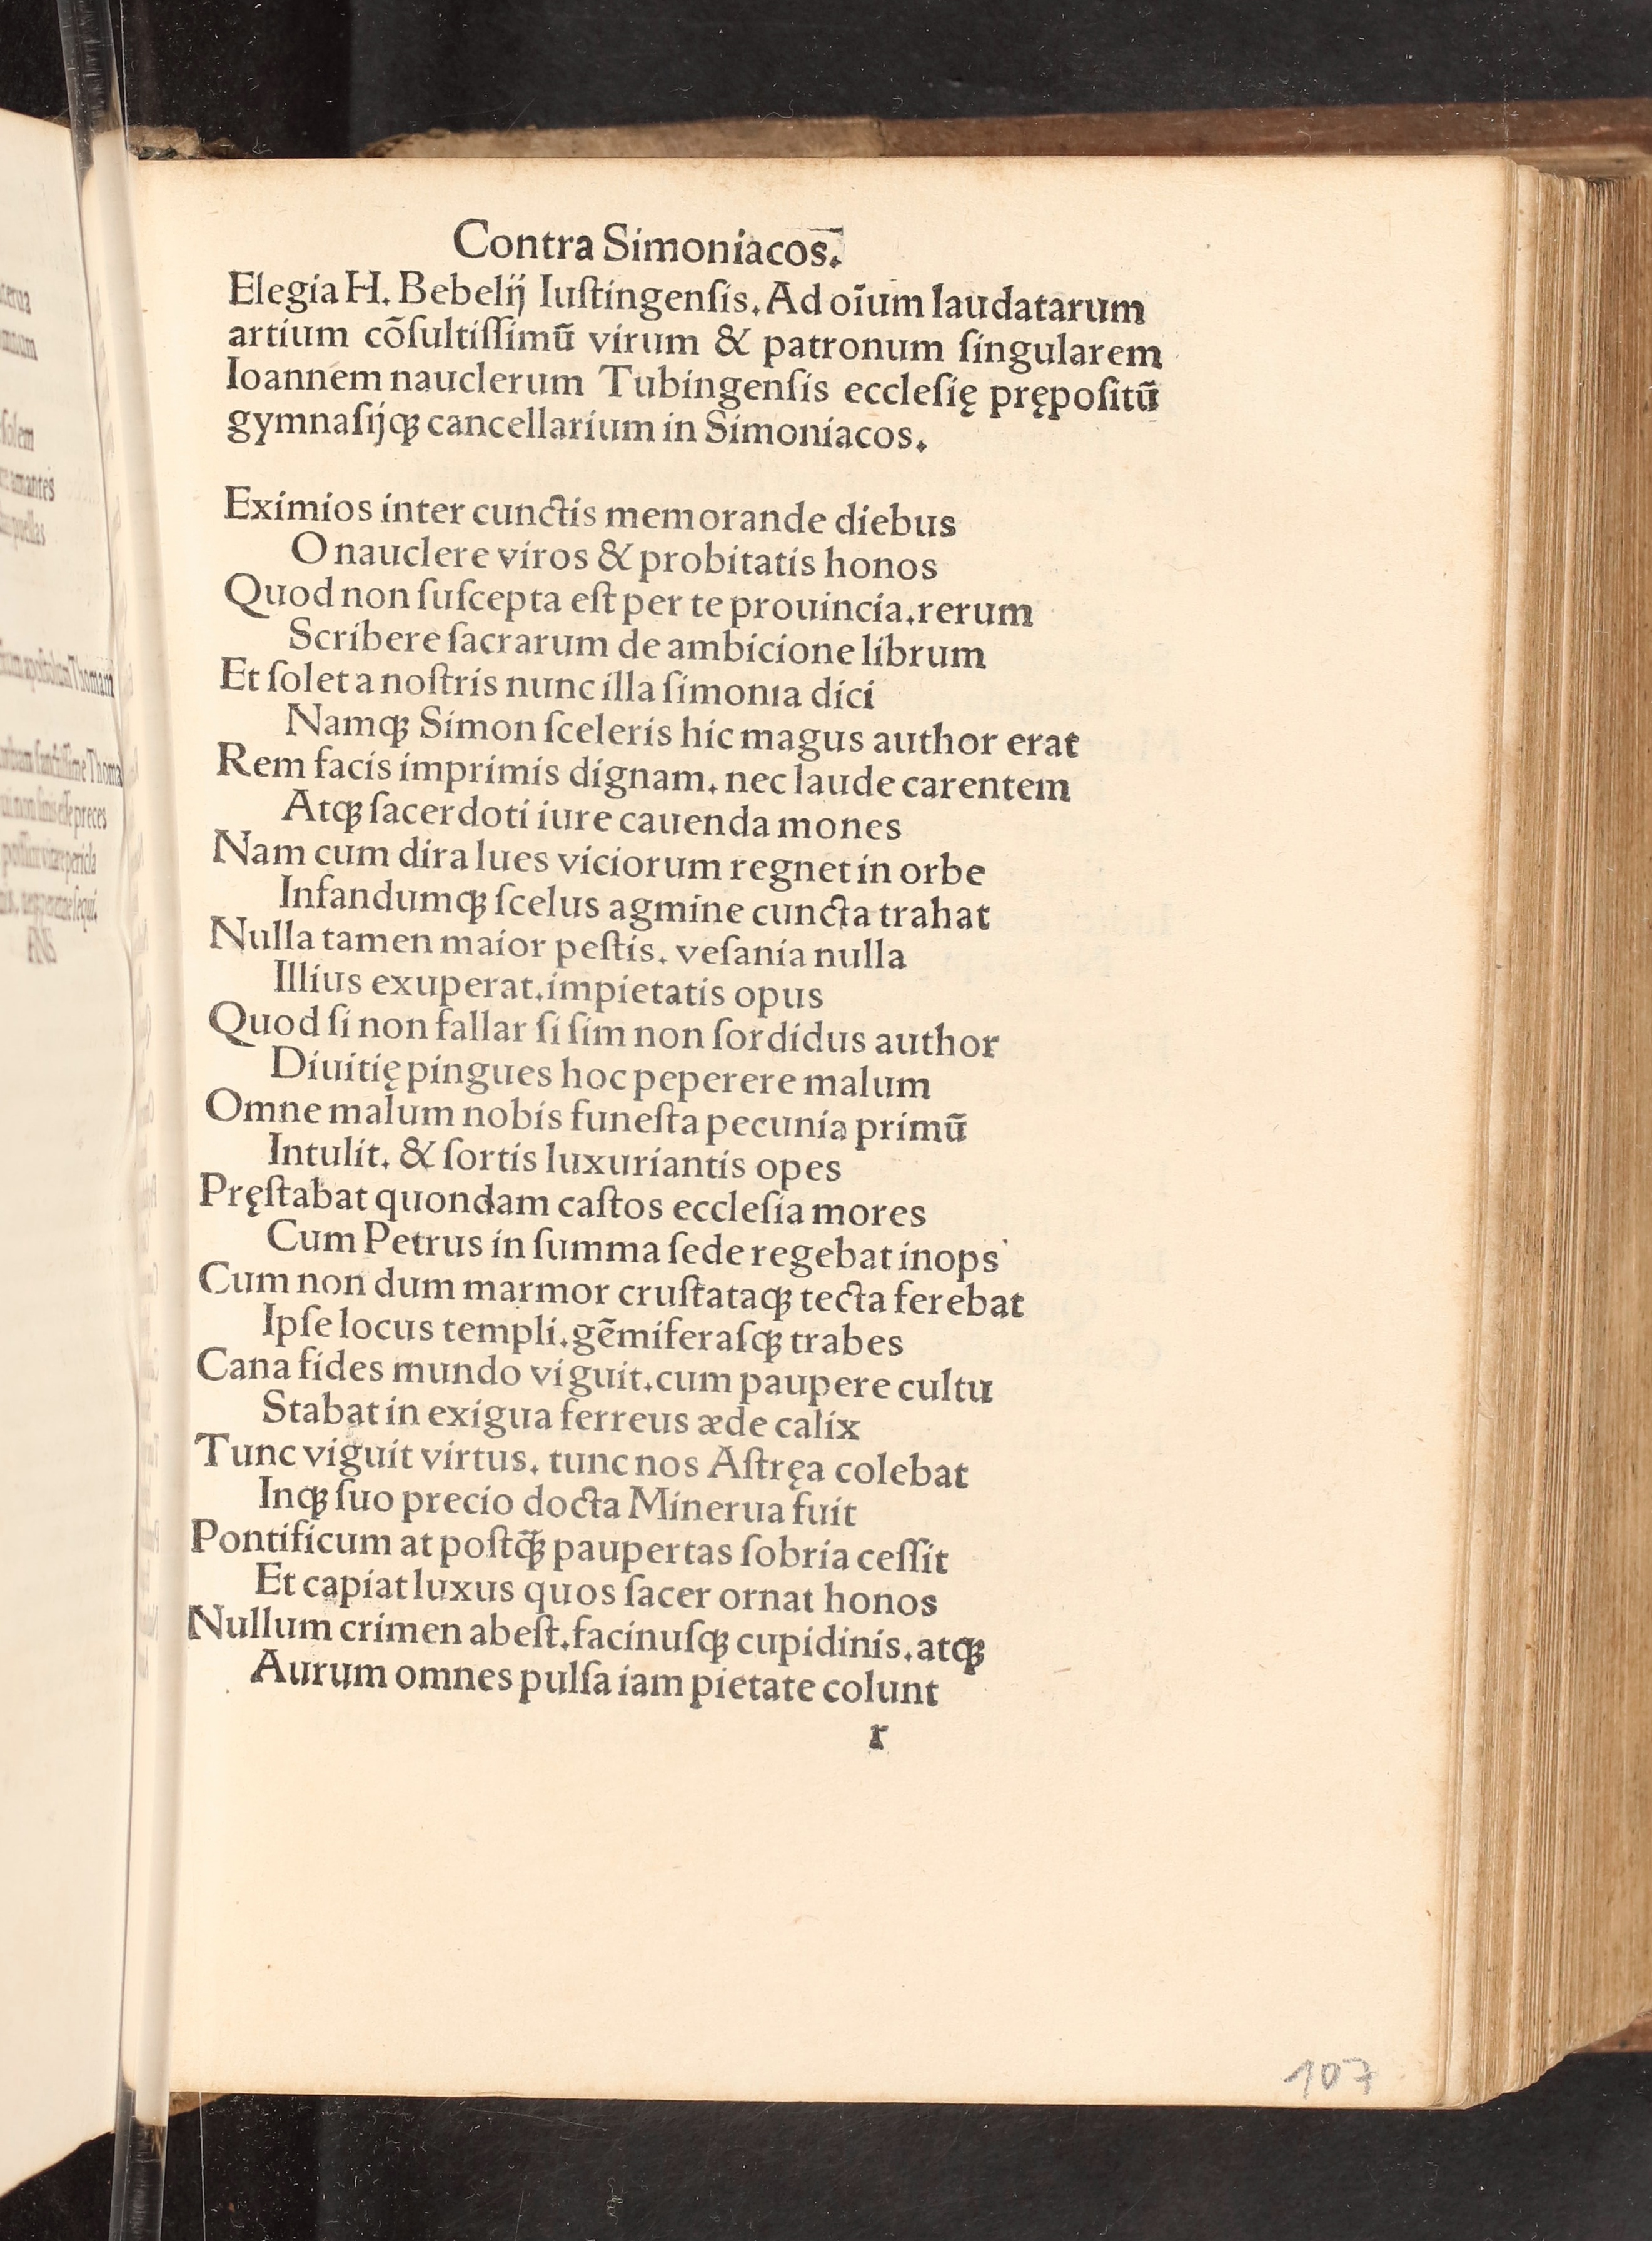 Contra Simoniacos.
Elegia H. Bebelij Iuſtingenſis. Ad oīum laudatarum
artium cōſultiſſimū virum & patronum ſingularem
Ioannem nauclerum Tubingenſis eccleſię prępoſitū
gymnaſijqꝫ cancellarium in Simoniacos.
Eximios inter cunctis memorande diebus
O nauclere viros & probitatis honos
Quod non ſuſcepta eſt per te prouincia.rerum
Scribere ſacrarum de ambicione librum
Et ſolet a noſtris nunc illa ſimonia dici
Namqꝫ Simon ſceleris hic magus author erat
Rem facis imprimis dignam. nec laude carentem
Atqꝫ ſacerdoti iure cauenda mones
Nam cum dira lues viciorum regnet in orbe
Infandumqꝫ ſcelus agmine cuncta trahat
Nulla tamen maior peſtis. veſania nulla
Illius exuperat.impietatis opus
Quod ſi non fallar ſi ſim non ſordidus author
Diuitię pingues hoc peperere malum
Omne malum nobis funeſta pecunia primū
Intulit. & ſortis luxuriantis opes
Pręſtabat quondam caſtos eccleſia mores
Cum Petrus in ſumma ſede regebat inops
Cum non dum marmor cruſtataqꝫ tecta ferebat
Ipſe locus templi.gēmiferaſqꝫ trabes
Cana fides mundo viguit.cum paupere cultu
Stabat in exigua ferreus æde calix
Tunc viguit virtus. tunc nos Aſtręa colebat
Inqꝫ ſuo precio docta Minerua fuit
Pontificum at poſtq̄ꝫ paupertas ſobria ceſſit
Et capiat luxus quos ſacer ornat honos
Nullum crimen abeſt.facinuſqꝫ cupidinis.atqꝫ
Aurum omnes pulſa iam pietate colunt
r
107